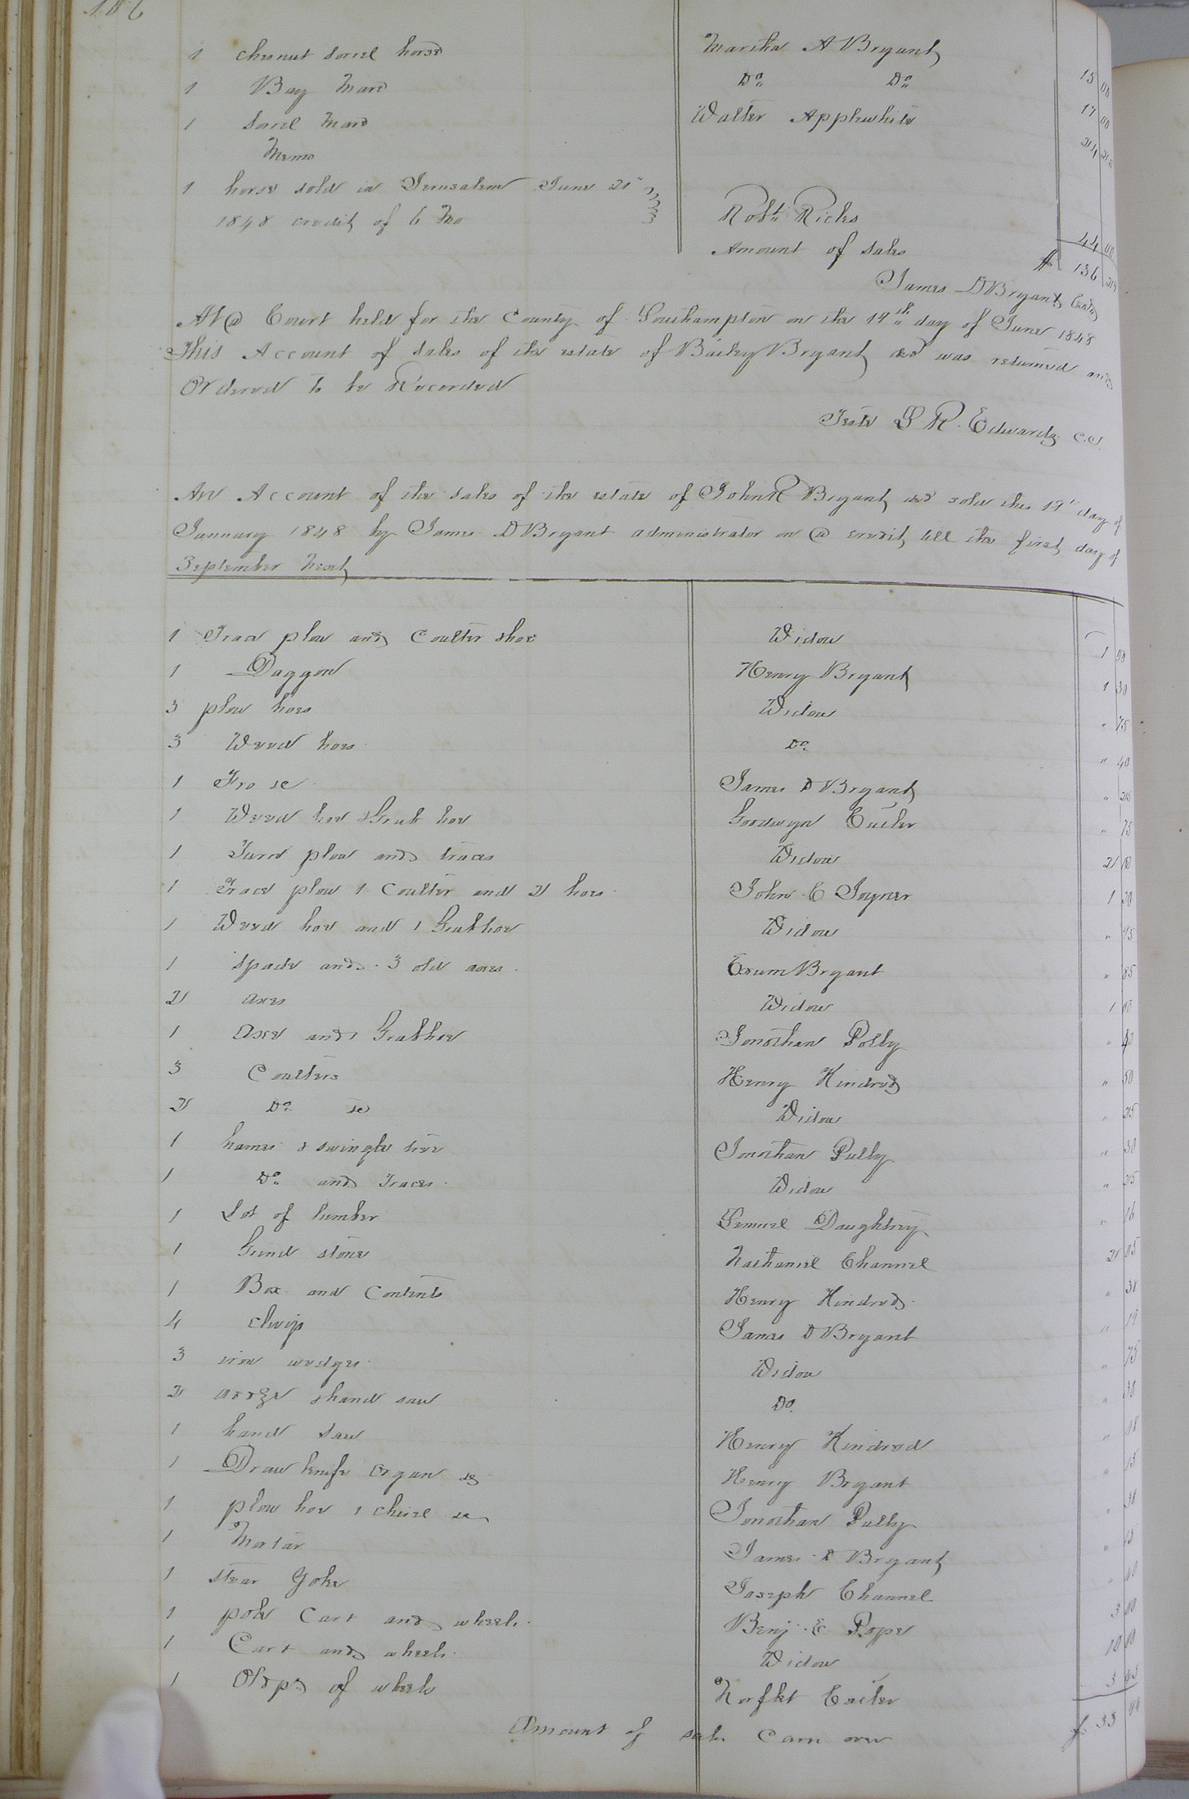 1 chesnut sorrel horse Martha A Bryant 15 00
1 Bay Mare Do Do 17 00
1 Sorrel Mare Walter Applewhite
Memo
1 horse sold in Jerusalem June 21st
1848 credit of 6 Mo Robt Ricks 44 00
Amount of sales $ 136
James D Bryant
At a Court held for the County of Southampton on the 19th day of June 1848
This Account of sales of the estate of Bailey Bryant decd was returned and
Ordered to be Recorded
Teste L R. Edwards C.C.
An Account of the sales of the estate of John R Bryant decd sold this 19th day of
January 1848 by James D Bryant administrator on a credit till the first day of
September Next
1 Trace plow and Coulter shoe Widow 1
1 Daggon Henry Bryant 1 30
3 plow hoes Widow " 75
3 Weed hoes Do " 40
1 Fro &c James D Bryant "
1 Weed hoe & Grub hoe Goodwyn " 75
1 Turn plow and traces Widow 2
1 Trace plow 1 Coulter and 2 hoes John E Joyner 1
1 Weed hoe and 1 Grub hoe Widow "
1 spade and 3 old axes Exum Bryant "
2 axes Widow 1
1 axe and 1 Grub hoe Jonathan Pully "
3 Coulters Henry Kindred " 50
2 Do &c Widow " 25
1 hames & swingle tree Jonathan Pully "
1 Do and Traces Widow " 25
1 Lot of lumber Lemuel Daughtry " 16
1 Grind stone Nathaniel Channel 2
1 Box and Contents Henry Kindred " 31
4 James D Bryant "
3 iron wedges Widow " 75
2 & hand saw Do "
1 hand saw Henry Kindred "
1 Draw knife &c Henry Bryant "
1 plow hoe 1 chisel &c Jonathan Pully "
1 James D Bryant "
1 stear Yoke Joseph Channel "
1 pole Cart and wheels Benj. E Pope 3 00
1 Cart and wheels Widow 10 00
1 Old pr of wheels Norflet 3
Amount of sales Carri over $ 33